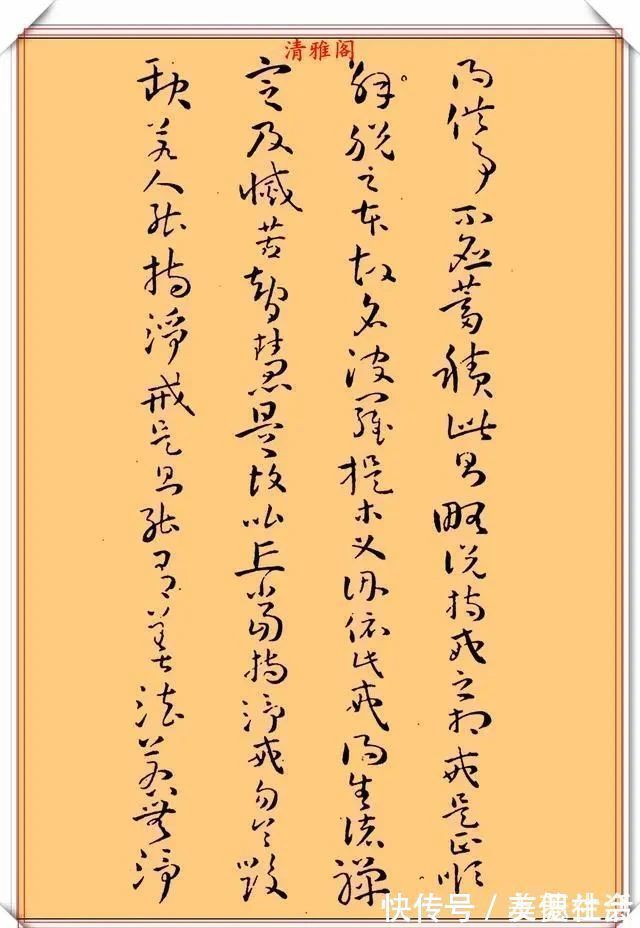 清雅阁
得供事不應蓄積此則略説持戒之相戒是正順
解脱之本故名波羅提木叉因依此戒得生諸禪
定及滅苦智慧是故比丘當持淨戒勿令毀
缺若人能持淨戒是則能有善法若無淨
快传号／